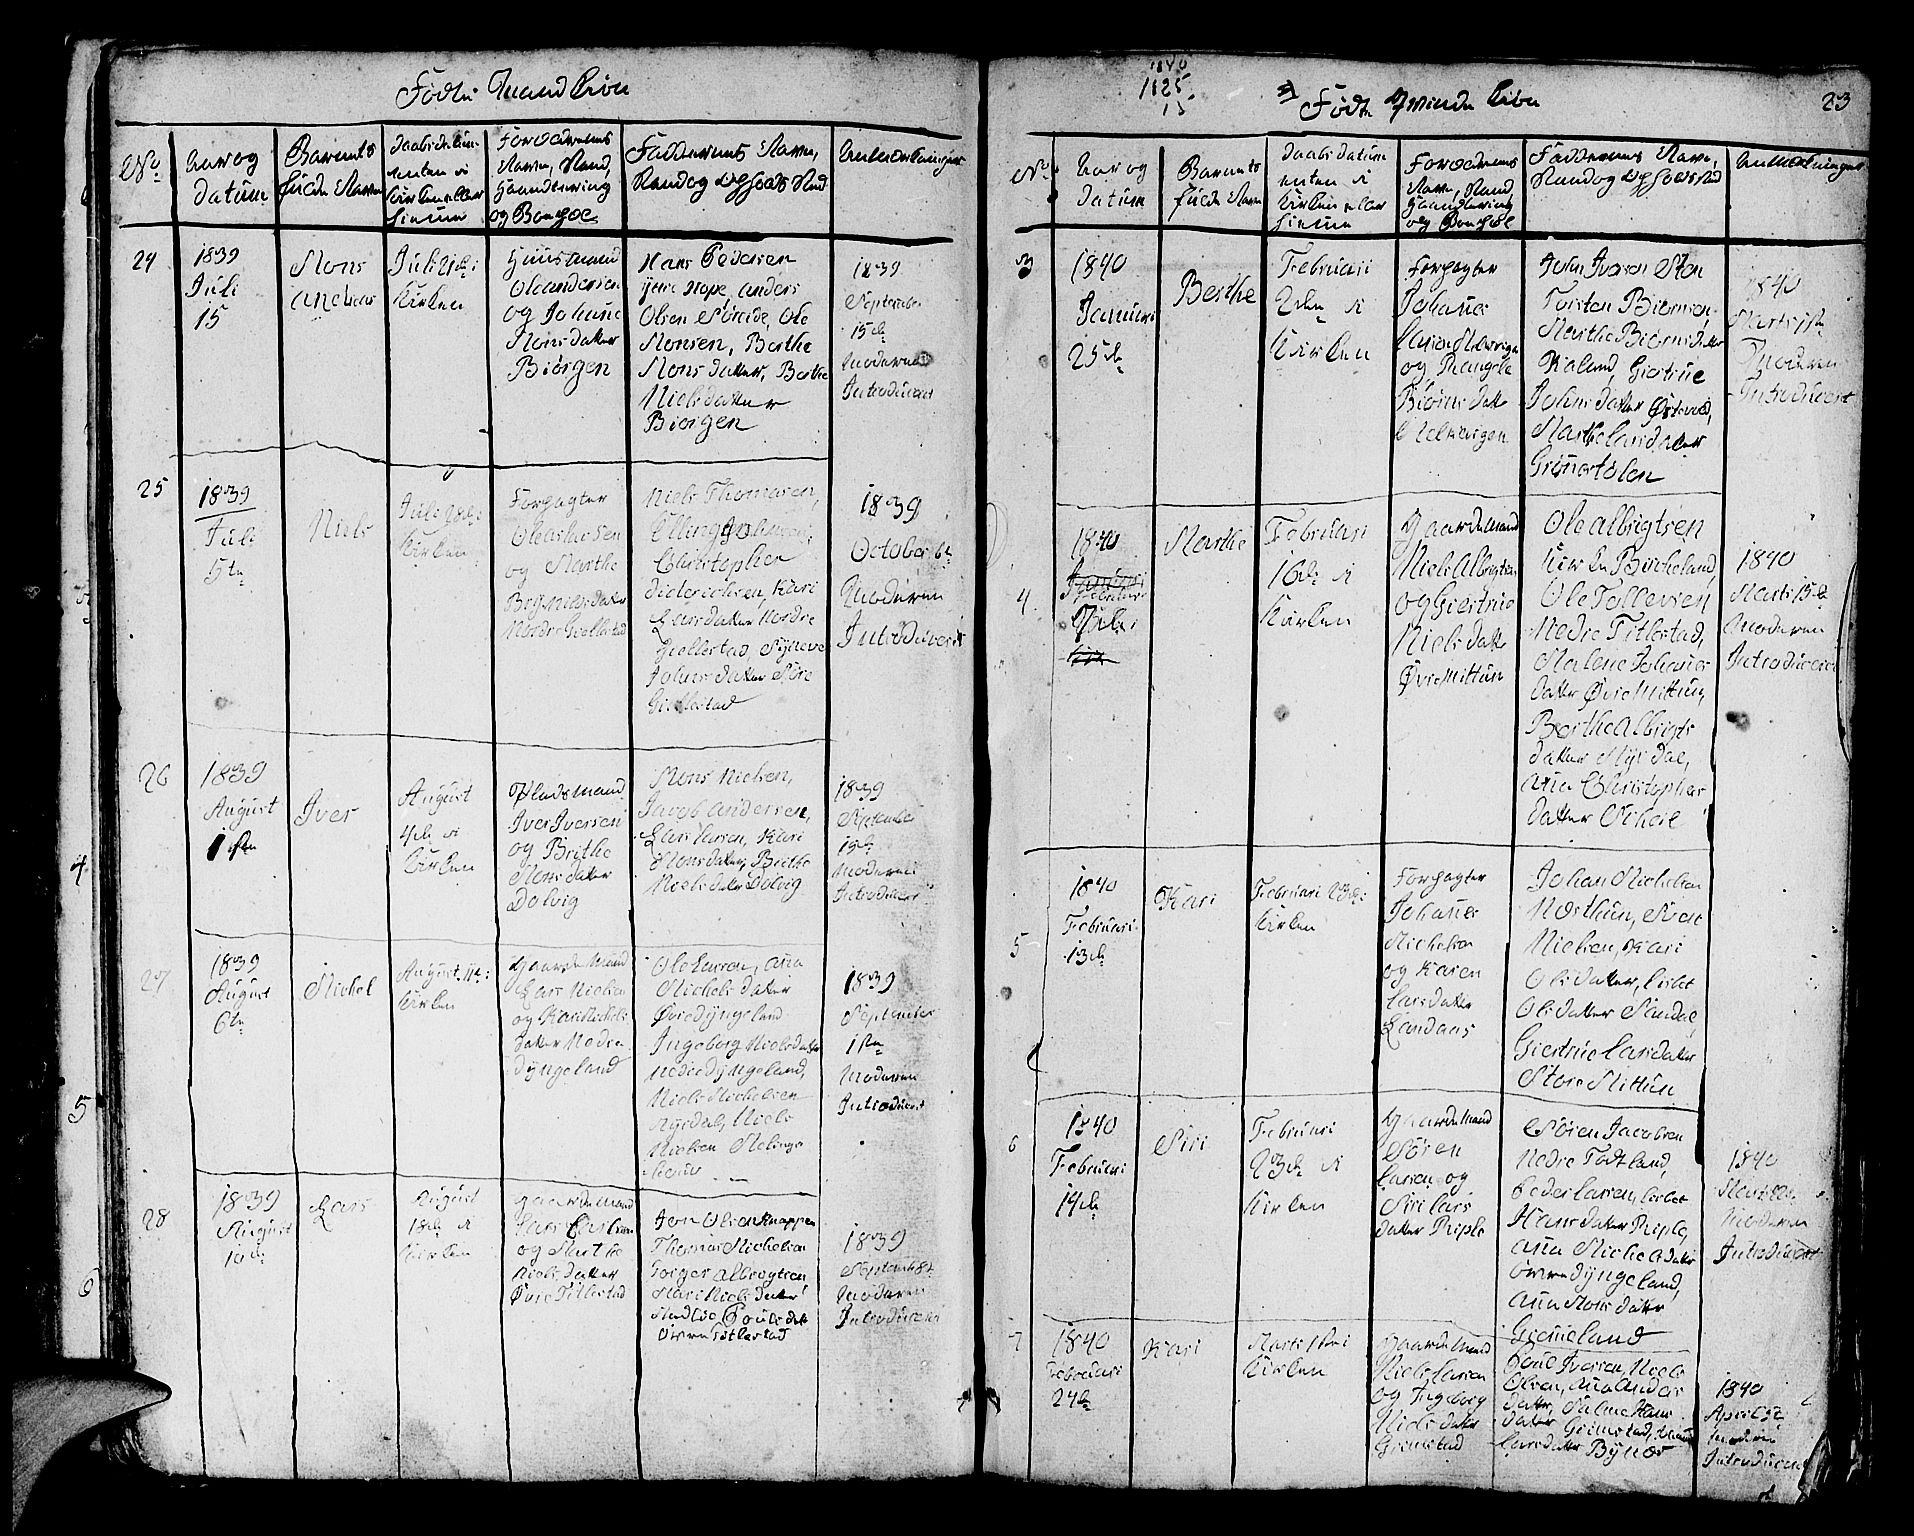 Fødte Mandkiøn
No
Aar og
Datum
Barnets
fulde Navn
Daabs datum
enten i
Kirken eller
hiemme
Forældrenes
Navn, Stand,
Haandtering
og Bopæl
Faddernes Navn,
Stand og Opholds Sted
Anmærkninger
24
1839
Juli
15
Mons
Andreas
Juli 21de i
Kirken
Huusmand
Ole Andersen
og Johanne
Monsdatter
Biørgen
Hans Pedersen
Hope, Anders
Olsen Søreide, Ole
Monsen, Berthe
Monsdatter, Berthe
Nielsdatter
Biørgen
1839
September
15de
Moderen
Introduceret
25
1839
Juli
5te
Niels
Juli 28de i
Kirken
Forpagter
Ole Larsen
og Marthe
Nielsdatter
Nordre Giellestad
Niels Thomasen,
Elling Johannes,
Christopher
Diderichsen, Kari
Larsdatter Nordre
Giellestad, Synneve
Johnsdatter Søre
Giellestad
1839
October 6te
Moderen
Introduceret
26
1839
August
1ste
Iver
August
4de i
Kirken
Pladsmand
Iver Iversen
og Brithe
Monsdatter
Dolvig
Mons Nielsen,
Jacob Andersen,
Lars Larsen, Kari
Monsdatter, Brithe
Nielsdatter Dolvig
1839
September
15de
Moderen
Introduceret
27
1839
August
6te
Michel
August 11te i
Kirken
Gaardemand
Lars Nielsen
og Kari Michels
datter Nedre
Dyngeland
Ole Larsen, Anna
Michelsdatter
Øvre Dyngeland
Ingeborg Nielsdatter
Nedre Dyngeland,
Niels Michelsen
Myrdal, Niels
Nielsen
1839
September
1ste
Moderen
Introduceret
28
1839
August
10de
Lars
August
18de i
Kirken
Gaardemand
Lars
og Marthe
Nielsdatter
Øvre Titlestad
Jon Olsen Knappen
Thomas Michelsen
Torger Albrigtsen,
Mari Nielsdatter
Poulsdatter
Øvre Titlestad
1839
September
Moderen
Introduceret
1840
1825
15
Fødte Qvindekiøn
23
No
Aar og
Datum
Barnets
fulde Navn
Daabs datum
enten i
Kirken eller
hiemme
Forældrenes
Navn, Stand
Haandtering
og Bopæl
Faddernes Navn,
Stand og Opholds Sted
Anmærkninger
3
1840
Januari
25de
Berthe
Februari
2den i
Kirken
Forpagter
Johannes
Larsen Helvigen
og Rangele
Biørnsdatter
Helvigen
John Iversen
Torsten Biørnsen,
Marthe Biørnsdatter
Kaland, Giertrue
Johnsdatter Østervold,
Marthe Larsdatter
1840
Marts 1ste
Moderen
Introduceret
4
1840
Januari
Februari
7de
Marthe
Februari
16de i
Kirken
Gaardemand
Niels Albrigtsen
og Giertrue
Nielsdatter
Øvre Mittun
Ole Albrigtsen
Kirke Birkeland,
Ole Tollevsen
Nedre Titlestad,
Malene Johannes
datter Øvre Mittun,
Berthe Albrigts
datter Myrdal,
Anna Christopher
datter
1840
Marts 15de
Moderen
Introduceret
5
1840
Februari
13de
Kari
Februari 23de i
Kirken
Forpagter
Johannes
Michelsen
og Karen
Larsdatter
Landaas
Johan Michelsen
Mørthun, Sivert
Nielsen, Kari
Olsdatter, Lisbet
Olsdatter Sandal,
Giertrue Larsdatter
Store Mittun
6
1840
Februari
14de
Siri
Februari
23de i
Kirken
Gaardemand
Søren
Larsen og
Siri Lars
datter Riple
Søren Jacobsen
Nedre Todtland,
Peder Larsen, Lisbet
Hansdatter Riple,
Anna Michelsdatter
Øvre Dyngeland,
Anna Monsdatter
Giemeland
1840
Marts 22de
Moderen
Introduceret
7
1840
Februari
24de
Kari
Marts 1ste i
Kirken
Gaardemand
Niels Larsen
og Ingeborg
Nielsdatter
Grimstad
Poul Iversen, Niels
Olsen, Anna Anders
datter, Hans
datter Grimstad,
Larsdatter Bynes
1840
April 5te
Moderen
Introduceret